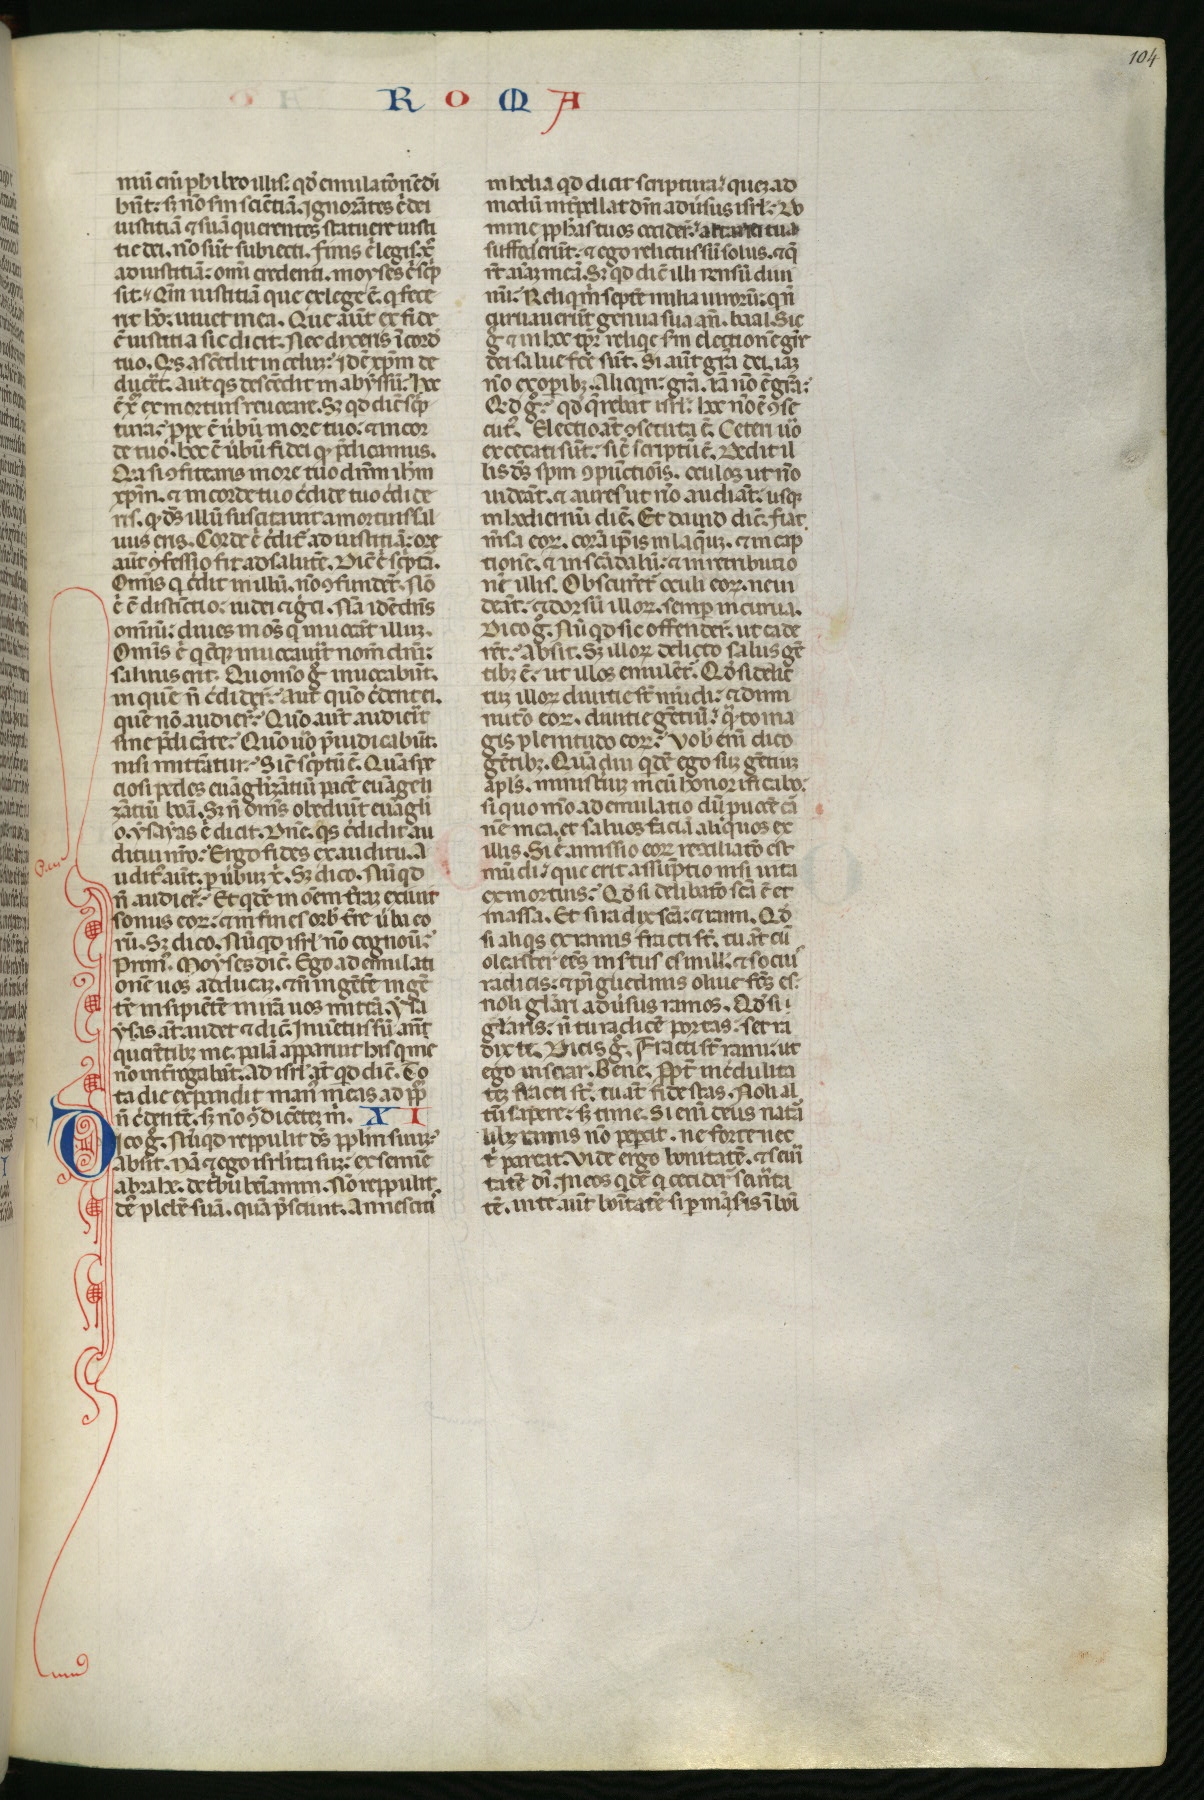 104
R O M A
niū eni͂ ꝑhibeo illis: qd̓ emulatōneꝫ dei
hn̄t: sꝫ nō sm̄ scīentiā. Ignorātes .e. dei
iustitiā ⁊ suā querentes statuere iusti
tie dei. nō sūt subiecti. Finis .e. legis .x̄.
ad iustitiā: omi credenti. Moyses .e. sc̄p
sit. Qm̄ iustitiā que ex lege ē. q̇ fece
rit hō: uiuet in ea. Que aūt ex fide
ē iustitia sic dicit. Nec dixeris i cord̓
tuo. Qͥs ascēdit in celuꝫ: Id ē xp̄m de
ducēt. aut qͥs descēdit in abyssū: hoc
ē x̄ ex mortuis reuocare. Sꝫ qd dic̄ sc̄p
tura: ꝓpe ē ūbū in ore tuo: ⁊ in cor
de tuo. Hoc ē ūbū fidei qd̓ p̄dicamus.
Q̇a si ꝯfitearis in ore tuo dn̄m ih̄m
xp̄m. ⁊ in corde tuo c̓dide tuo c̓dide
ris. qd̓ d̄s illū suscitauit a mortuis sal
uus eris. Corde .e. c̓dit̄ ad iustitiā: ore
aūt ꝯfessio fit ad salutē. Dic̄ .e. sc̓pta.
Om̄is q̇ c̓dit in illū. nō ꝯfundet̄. Nō
.e. ē distinctio: iudei ⁊ gͤci. Nā idē dn̄s
omniū: diues in om̄s q̇ inuocāt illuꝫ.
Omis .e. qͥcūqꝫ inuocauit̄ nom̄ dn̄i:
saluus erit. Quomo ḡ inuocabūt.
in quē n̄ c̓dider̄: Aut quō c̓dent ei.
quē nō audier̄: Quō aut̄ audiēt
sine p̄dicāte: Quō uō p̄iudicabūt.
nisi mittātur: Sic̄ sc̓ptū ē. Quā spe
ciosi pedes euāglizātiū pacē euāgeli
zātiū bona. Sꝫ n̄ om̄s obediūt euāgli
o. Ysayas .e. dicit. Dn̄e. qͥs c̓didit au
ditui nr̄o: Ergo fides ex auditu. A
uditꝰ aūt. p ūbuꝫ x̄. Sꝫ dico. Nūqd
n̄ audier̄: Et qͥdē in oēm terraꝫ exiuit
sonus eoꝝ: ⁊ in fines orbi t̄re ūba eo
rū. Sꝫ dico. Nūqd isrl̄ nō cognouit:
Primꝰ Moyses dic̄. Ego ad emulati
onē uos adducaꝫ. ⁊ n̄ in gētē in gē
tē insipiētē in irā uos mittā. Ysa
ysas at̄ audet ⁊ dic̄. Inuētus sū a n̄
querētibꝫ me. palā apparui his q̇ me
nō int̄rogabāt. Ad isrl̄ at̄ qd dic̄. To
ta die expandi manꝰ meas ad p̄p
n̄ c̓dentē. sꝫ nō ꝯdicētēꝫ m̄. XI
Dico ḡ. Nūqd reppulit d̄s ppl̄m suuꝫ:
absit. Nā ⁊ ego isrl̄ita suꝫ: ex semīe
abrahe. de tͥbu beniamin. Nō reppulit
dē plebē suā. quā p̄sciuit. An nesciti
in helia qd dicit scriptura: queꝫad
modū int̄pellat dn̄m aduersus isrl̄: Do
mine ꝓphas tuos occider̄. altaria tua
suffoderūt: ⁊ ego relictus sū solus. ⁊ q̇
rt̄ aīaꝫ meā. Sꝫ qd dic̄ illi rensū diui
nū: Reliqͥ m̄ septē milia uiroꝝ: qͥ n̄
curuauerūt genua sua an̄. baal. Sic
ḡ ⁊ in hoc tp̄r reliqͥe sm̄ electionē gr̄e
dei salue fc̄e sūt. Si aūt gr̄a dei. iaꝫ
nō ex opibꝫ. Alioqn̄: gr̄a. iā nō ē gr̄a:
Qd̓ ḡ: qd̓ q̄rebat isrl̄: hoc nō ē ꝯse
cutꝰ. Electio at̄ ꝯsecuta ē. Ceteri uō
excecati sūt: sic̄ scriptū ē. Dedit il
lis ds̄ sp̄m ꝯpūctionis. oculos ut nō
uideāt. ⁊ aures ut nō audiāt: usqꝫ
in hodiernū diē. Et dauid dic̄. fiat
m̄sa eoꝝ. corā ip̄is in laqͤuꝫ. ⁊ in cap
tionē. ⁊ in scādalū: ⁊ in retributio
nē illis. Obscurēt̄ oculi eoꝝ. ne ui
deāt: ⁊ dorsū illoꝝ. semp incurua.
Dico ḡ. Nūqd sic offender̄. ut cade
rēt: Absit. Sꝫ illoꝝ delicto salus gē
tibꝫ ē: ut illos emulēt̄. Qd̓ si delic
tū illoꝝ diuitie st̄ mūdi: ⁊ dimi
nutō eoꝝ. diuitie gētiū: qͣto ma
gis plenitudo eoꝝ: Vob̄ enī dico
gētibꝫ. Quādiu qͥdē ego suꝫ gētiuꝫ
apl̄s. ministiuꝫ meū honorificabo:
si quo m̄o ad emulatio dū puocē ca
nē meā. et saluos faciā aliquos ex
illis. Si .e. amissio eoꝝ recōliatō est
mūdi: que erit assūptio nisi uita
ex mortuis: Qd̓ si delibatō scā ē et
massa. Et si radix scā: ⁊ rami. Qd̓
si aliqͥs ex ramis fracti st̄. tu at̄ cū
oleaster eēs insertus es in ill: ⁊ sociꝰ
radicis: ⁊ pīguedinis oliue fcs̄ es:
noli glari aduersus ramos. Qd̓ si
glaris: n̄ tu radicē portas: set ra
dix te. Dicis ḡ. Fracti st̄ rami: ut
ego inserar. Bene. Ppt̄ incdulita
teꝫ fracti st̄. tu at̄ fide stas. Noli al
tū sapere: sꝫ time. Si enī deus natal̄
libꝫ ramis nō pepcit. ne forte nec
t̄ parcat. Vide ergo bonitatē. ⁊ seueri
tatē di. In eos qͥdē q̇ cecider̄ seuita
tē. in te aūt bonitatē si pmāsis i boi